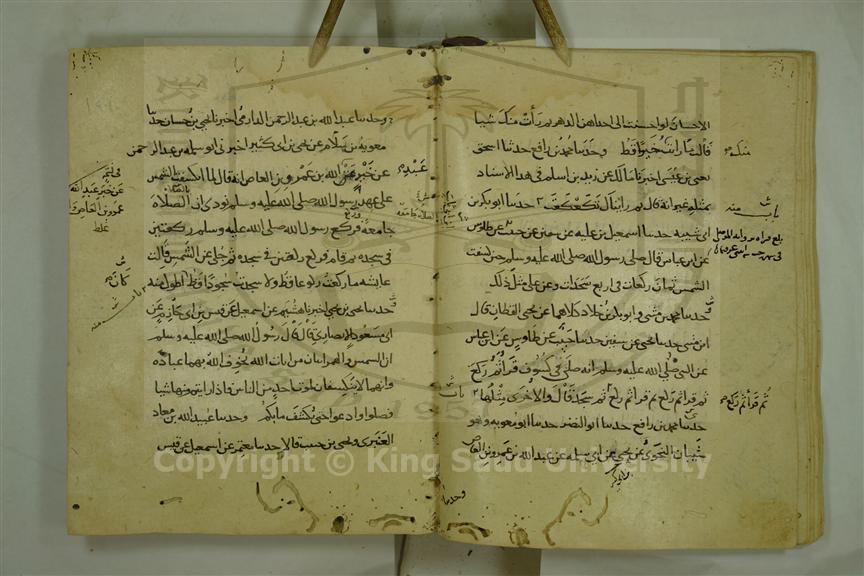 الاحسان لو احسنت الى احداهن الدهر ثم رأت منك شيئا
قالت ما رأيت منك خيرا قط وحدثنا محمد بن رافع حدثنا اسحق
يعنى بن عيسى اخبرنا مالك عن زيد بن اسلم في هذا الاسناد
بمثله غير انه قال ثم رايناك تكعكعت حدثنا ابو بكر بن
ابى شيبة حدثنا اسمعيل بن علية عن سفين عن حبيب عن طاوس
عن ابن عباس قال صلى رسول الله صلى الله عليه وسلم حين كسفت
الشمس ثمان ركعات في اربع سجدات وعن على مثل ذلك
وحدثنا محمد بن مثنى وابو بكر بن خلاد كلاهما عن يحيى القطان قال
ابن مثنى حدثنا يحيى عن سفين حدثنا حبيب عن طاوس عن ابن عباس
عن النبى صلى الله عليه وسلم انه صلى في كسوف قرأ ثم ركع
ثم قرا ثم ركع ثم قرا ثم ركع ثم سجد قال والاخرى مثلها
حدثنى محمد بن رافع حدثنا ابو النضر حدثنا ابو معوية وهو
شيبان النحوى عن يحيى عن ابى سلمة عن عبد الله بن عمرو بن العاص
منك
ثم قرأ ثم ركع
وحدثنا
وحدثنا عبد الله بن عبد الرحمن الدارمى اخبرنا يحيى بن حسان حدثنا
معوية بن سلام عن يحيى بن ابى كثير اخبرنى ابو سلمة بن عبد الرحمن
عن خبر عبد الله بن عمرو بن العاص انه قال لما انكسفت الشمس
على عهد رسول الله صلى الله عليه وسلم نودى ان الصلاة
جامعة فركع رسول الله صلى الله عليه وسلم ركعتين
في سجدة ثم قام فركع ركعتين في سجدة ثم جلى عن الشمس قالت
عائشة ما ركعت ركوعا قط ولا سجدت سجودا قط اطول منه
حدثنا يحيى بن يحيى اخبرنا هشيم عن اسمعيل عن قيس بن ابى حازم عن
ابى مسعود الانصارى قال قال رسول الله صلى الله عليه وسلم
ان الشمس والقمر ايتان من ايات الله يخوف الله بهما عباده
وانهما لا ينكسفان لموت احد من الناس فاذا رايتم منها شيئا
فصلوا وادعوا حتى يكشف ما بكم وحدثنا عبيد الله بن معاذ
العنبرى ويحيى بن حبيب قالا حدثنا معتمر عن اسمعيل عن قيس
عن خبر عبد الله
عمرو بن العاص
غلط
كان
Copyright © King Saud University
1957